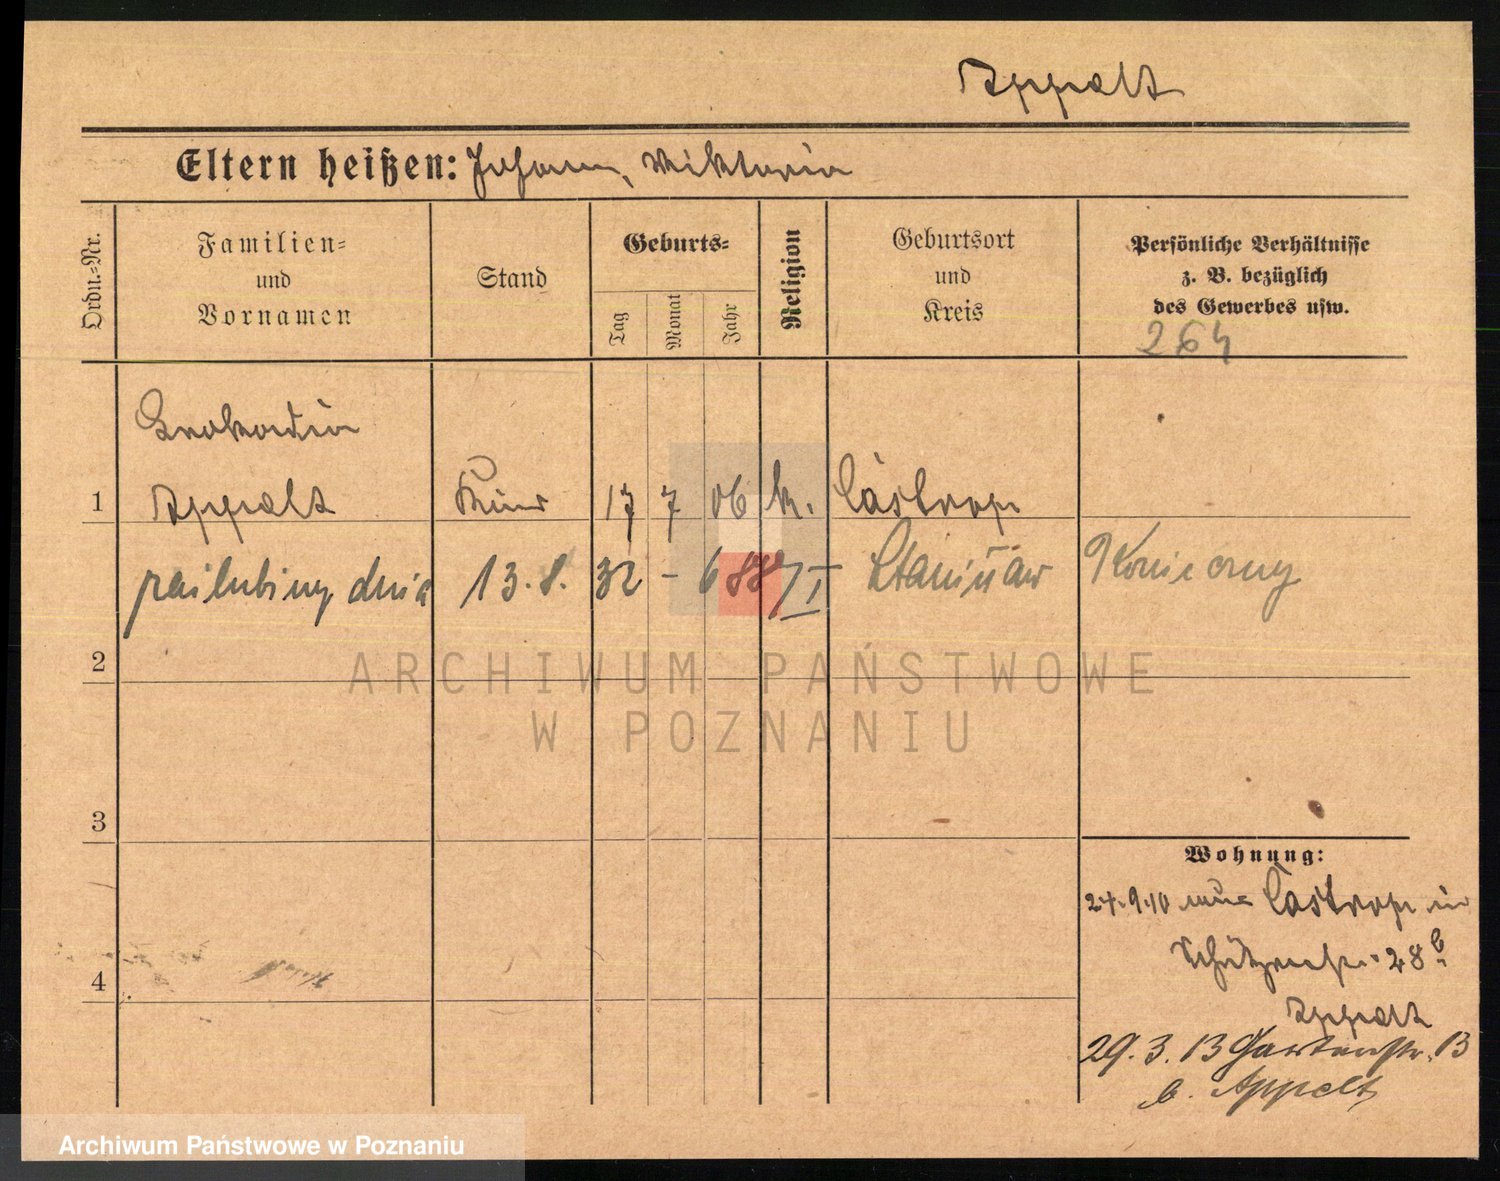 Appelt
Eltern heißen: Johann, Viktoria
Ordn.-Nr.
Familien-
und
Vornamen
Stand
Geburts-
Tag
Monat
Jahr
Religion
Geburtsort
und
Kreis
Persönliche Verhältnisse
z. B. bezüglich
des Gewerbes usw.
264
Leokadia
1 Appelt Kind 17 7 06 k. Castrop
dnia 13.8. 32 - 688/I Stanisław
2
3
Wohnung:
24.9.10 aus Castrop in
28b
4
Appelt
29.3.13 Gartenstr. 13
b. Appelt
ARCHIWUM PAŃSTWOWE
W POZNANIU
Archiwum Państwowe w Poznaniu